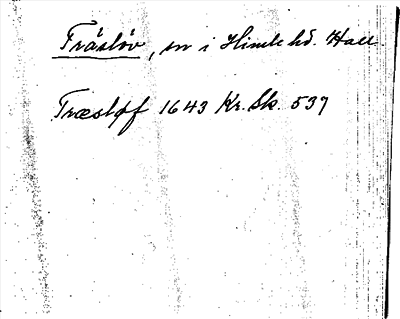 Träslöv, sn i Himle hd. Hall.
Træsløff 1643 Kr. Sk. 537